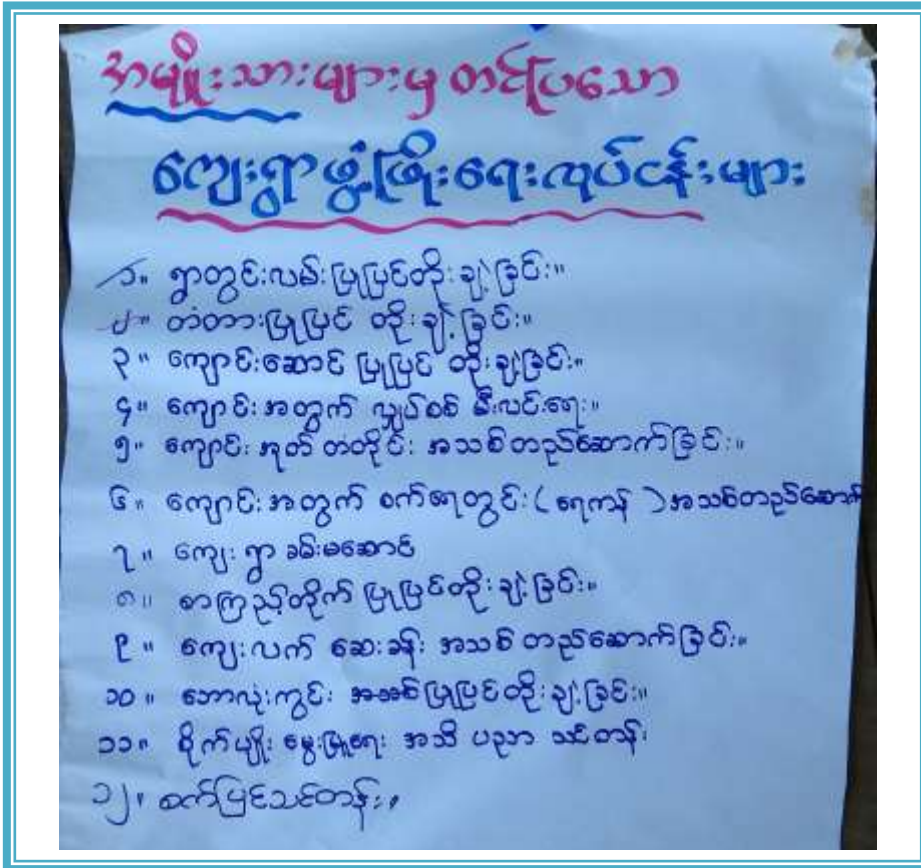 အမျိုးသားများမှ တင်ပြသော
ကျေးရွာဖွံ့ဖြိုးရေးလုပ်ငန်းများ
၁။ ရွာတွင်းလမ်းပြုပြင်တိုးချဲ့ခြင်း။
၂။ တံတားပြုပြင် တိုးချဲ့ခြင်း။
၃။ ကျောင်းဆောင် ပြုပြင် တိုးချဲ့ခြင်း။
၄။ ကျောင်းအတွက် လျှပ်စစ် မီးလင်းရေး။
၅။ ကျောင်း အုတ် တံတိုင်း အသစ်တည်ဆောက်ခြင်း။
၆။ ကျောင်းအတွက် စက်ရေတွင်း (ရေကန်) အသစ်တည်ဆောက်
၇။ ကျေးရွာ ခမ်းမဆောင်
၈။ စာကြည့်တိုက် ပြုပြင်တိုးချဲ့ခြင်း။
၉။ ကျေးလက် ဆေးခန်း အသစ် တည်ဆောက်ခြင်း။
၁၀။ ဘောလုံးကွင်း ပြုပြင်တိုးချဲ့ခြင်း။
၁၁။ စိုက်ပျိုး မွေးမြူရေး အသိ ပညာ သင်တန်း
၁၂။ စက်ပြင်သင်တန်း။